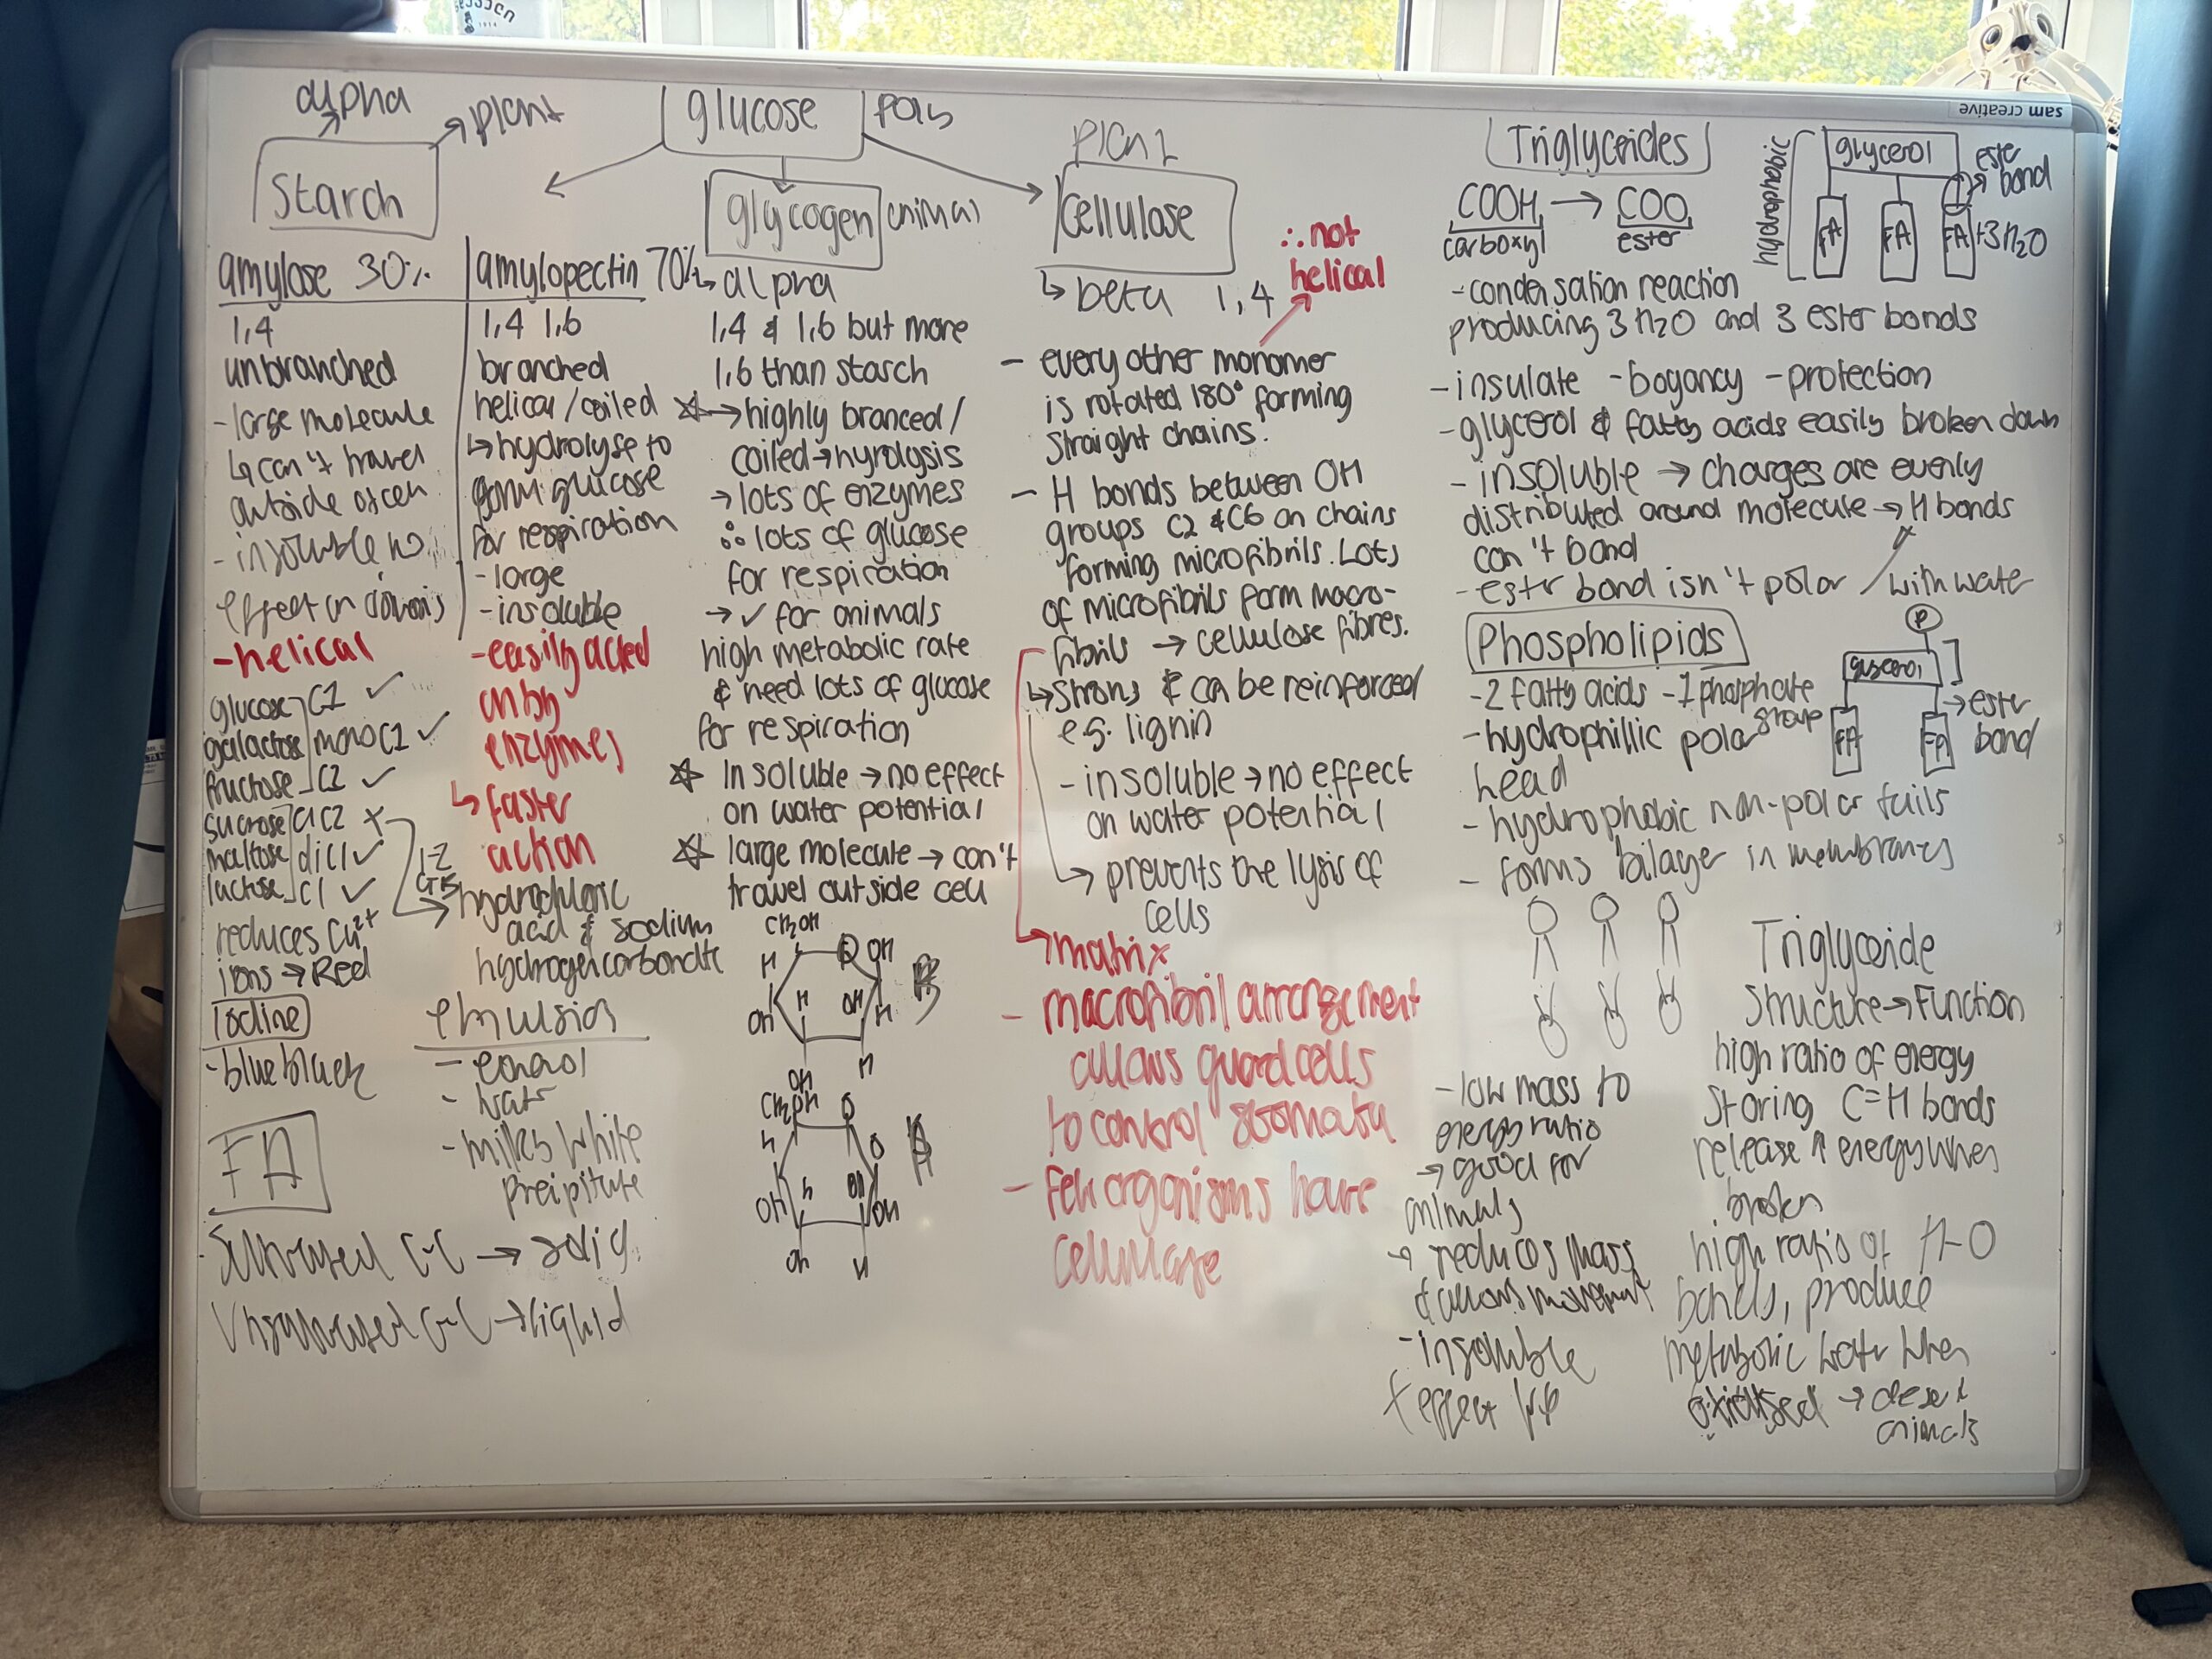 alpha
plant
Starch
glucose
polys
glycogen
animal
plant
Cellulose
∴ not
helical
amylose 30%
1,4
unbranched
- large molecule
↳ can't travel
outside of cell
- insoluble no
effect on
- helical
amylopectin 70%
1,4 1,6
branched
helical/coiled
↳ hydrolyse to
form glucose
for respiration
- large
- insoluble
- easily acted
on by
enzymes
↳ faster
action
glucose C1 ✓
galactose mono C1 ✓
fructose C2 ✓
sucrose C1C2 x
maltose di C1 ✓
lactose C1 ✓
hydrochloric
acid & sodium
hydrogencarbonate
reduces Cu²⁺
ions → Red
Iodine
- blue black
emulsion
- ethanol
- water
- milky white
preipitate
FA
Saturated C-C → solid
Unsaturated C=C → liquid
↳ alpha
1,4 & 1,6 but more
1,6 than starch
☆ → highly branced/
coiled → hyrolysis
→ lots of enzymes
∴ lots of glucose
for respiration
→ ✓ for animals
high metabolic rate
& need lots of glucose
for respiration
☆ Insoluble → no effect
on water potential
☆ large molecule → can't
travel outside cell
CH₂OH
O OH
H
H OH
OH H
OH H
CH₂OH O
H O
H OH
OH OH
OH H
↳ beta 1,4
- every other monomer
is rotated 180° forming
straight chains.
- H bonds between OH
groups C2 & C6 on chains
forming microfibrils. Lots
of microfibrils form macro-
fibrils → cellulose fibres.
↳ strong & can be reinforced
e.g. lignin
- insoluble → no effect
on water potential
→ prevents the lysis of
cells
→ matrix
- macrofibril arrangement
allows guard cells
to control stomata
- Few organisms have
cellulase
Triglycerides
COOH → COO
carboxyl ester
hydrophobic
glycerol
ester
bond
FA FA FA +3H₂O
- condensation reaction
producing 3 H₂O and 3 ester bonds
- insulate - bogancy - protection
- glycerol & fatty acids easily broken down
- insoluble → charges are evenly
distributed around molecule → H bonds
can't bond
- ester bond isn't polar with water
Phospholipids
- 2 fatty acids - 1 phosphate
group
- hydrophillic polar
head
- hydrophobic non-polar tails
- forms bilayer in membranes
P
glycerol
FA FA
→ ester
bond
Triglyceride
Structure → Function
high ratio of energy
storing C=H bonds
release ↑ energy when
broken
high ratio of H-O
bonds, produce
metabolic water when
oxidised → desert
animals
- low mass to
energy ratio
→ good for
animals
→ reduces mass
& allows movement
- insoluble
x effect WP
sam creative